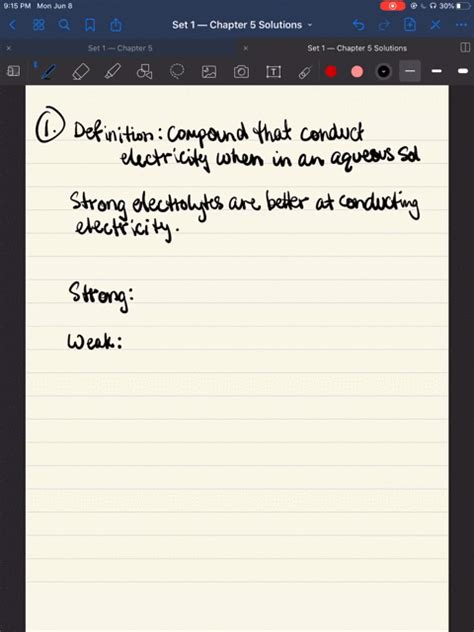 9:15 PM Mon Jun 8
30%
Set 1 — Chapter 5 Solutions
Set 1 — Chapter 5
Set 1 — Chapter 5 Solutions
1. Definition: compound that conduct
electricity when in an aqueous sol
Strong electrolytes are better at conducting
electricity.
Strong:
Weak: